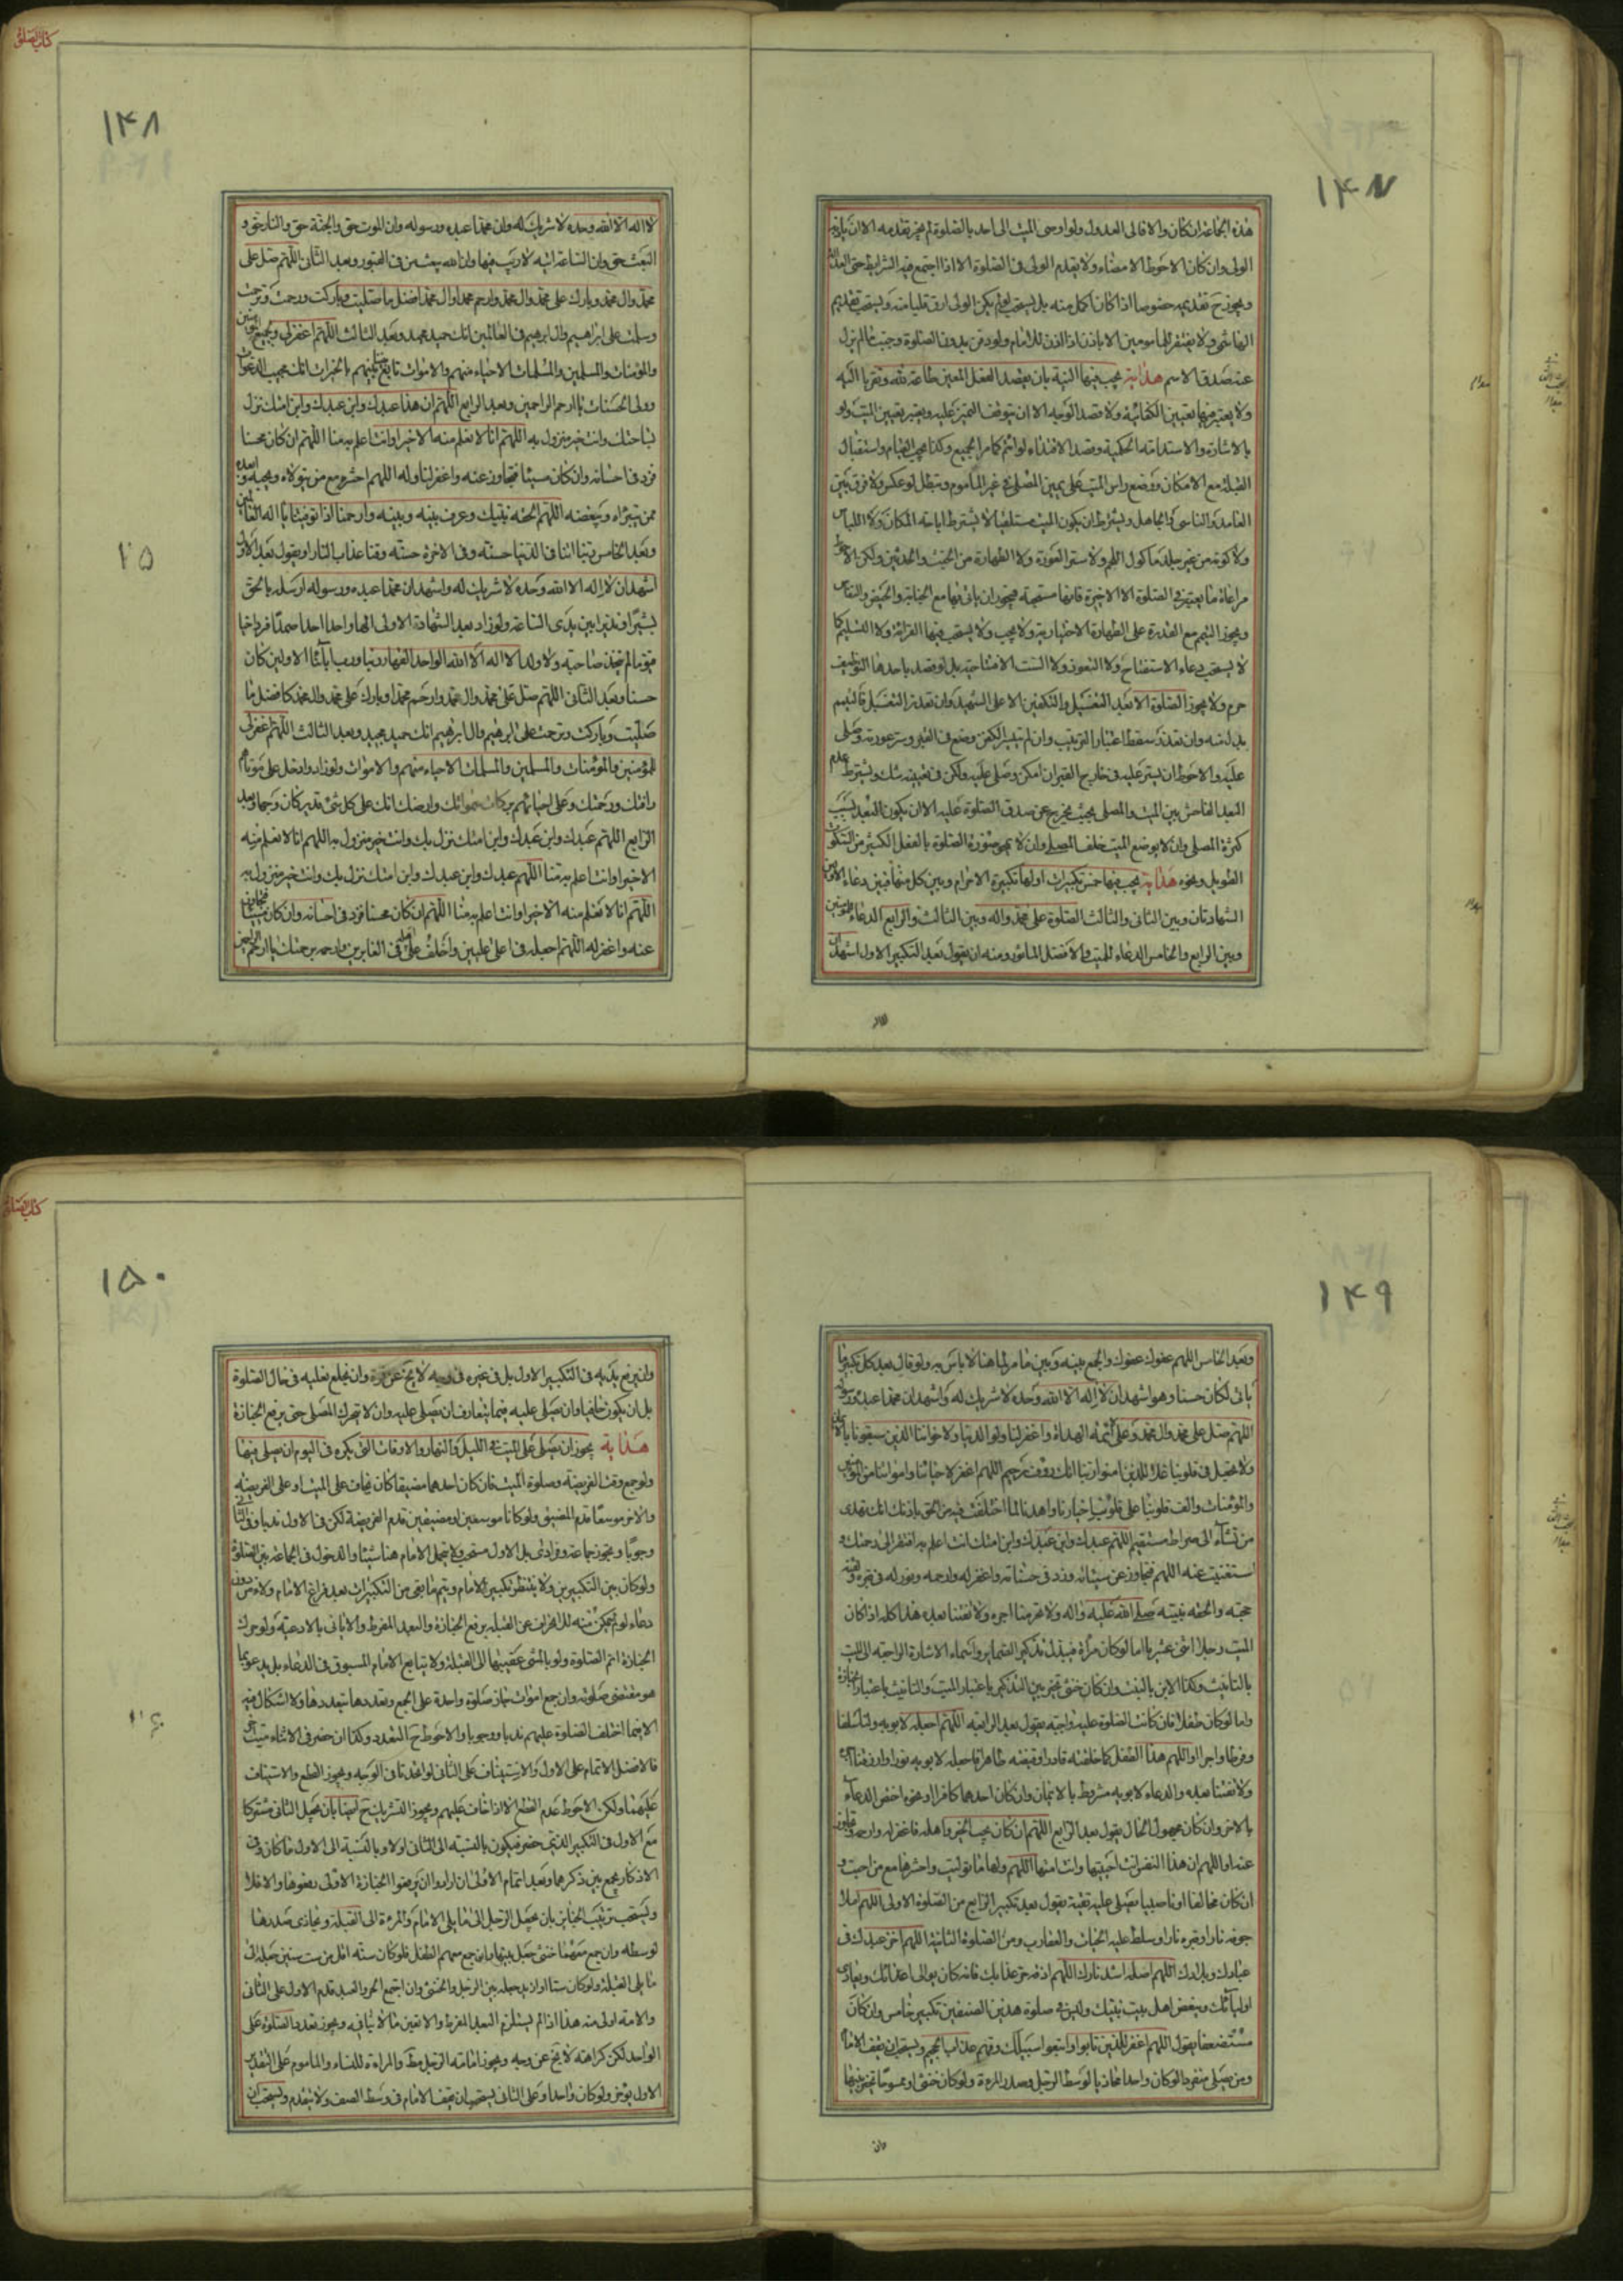 ١٤٧
هذه الجماعة ان كان والا فالى العدول ولو اوصى الميت الى احد بالصلوة لم يجز تقدمه الا ان ياذن
الولى وان كان الاحوط الامضاء ولا يتقدم الولى فى الصلوة الا اذا اجتمع فيه الشرايط حتى العدالة
ويجوز ح تقديمه خصوصا اذا كان اكمل منه بل يستحب ويستحب تقديم
الهاشمى ولا يفتقر المامومين الا باذن
عند صدق الاسم هداية يجب فيها النية بان يقصد الفعل المعين طاعة لله وتقربا اليه
ولا يعتبر فيها تعيين الكفائية ولا قصد الوجه الا ان يتوقف التميز عليه ويعتبر تعيين الميت ولو
بالاشارة والاستدامة الحكمية وقصد الاقتداء لو ائتم كما مر الجميع وكذا يجب القيام واستقبال
القبلة مع الامكان ووضع راس الميت على يمين المصلى فى غير الماموم وتبطل لو عكس ولا فرق بين
العامد والناسى والجاهل ويشترط ان يكون الميت مستلقيا لا يشترط اباحة المكان ولا اللباس
ولا كونه من غير جلد ماكول اللحم ولا ستر العورة ولا الطهارة من الخبث والحدثين ولكن الاحوط
مراعاة ما يعتبر فى الصلوة الا الاخيرة فانها مستحبة فيجوز ان ياتى بها مع الجنابة والحيض والنفاس
ويجوز التيمم مع القدرة على الطهارة الاختيارية ولا يجب ولا يستحب فيها القرائة ولا التسليم كما
لا يستحب دعاء الاستفتاح ولا التعوذ ولا الست الافتتاحية بل لو قصد باحدها التوظيف
حرم ولا يجوز الصلوة الا بعد التغسيل والتكفين الا على الشهيد وان تعذر التغسيل فالتيمم
بدل منه وان تعذر سقط اعتبار الترتيب وان لم تيسر الكفن وضع فى القبر وستر عورته وصلى
عليه والاحوط ان يستر عليه فى خارج القبر ان امكن وصلى عليه ولكن فى تعيينه شك ويشترط عدم
البعد الفاحش بين الميت والمصلى بحيث يخرج عن صدق الصلوة عليه الا ان يكون البعد بسبب
كثرة المصلى وان لا يوضع الميت خلف المصلى وان لا يمحو صورة الصلوة بالفعل الكثير من السكوت
الطويل ونحوه هداية يجب فيها خمس تكبيرات اولها تكبيرة الاحرام وبين كل منها فبين دعاء الاولين
الشهادتان وبين الثانى والثالث الصلوة على محمد واله وبين الثالث والرابع الدعاء للمؤمنين
وبين الرابع والخامس الدعاء للميت والافضل الماثور ومنه ان يقول بعد التكبير الاول اشهد ان
كتاب الصلوة
١٤٨
لا اله الا الله وحده لا شريك له وان محمدا عبده ورسوله وان الموت حق والجنة حق والنار حق و
البعث حق وان الساعة اتية لا ريب فيها وان الله يبعث من فى القبور وبعد الثانى اللهم صل على
محمد وال محمد وبارك على محمد وال محمد وارحم محمدا وال محمد افضل ما صليت وباركت ورحمت وترحمت
وسلمت على ابراهيم وال ابراهيم فى العالمين انك حميد مجيد وبعد الثالث اللهم اغفر لى ولجميع المؤمنين
والمؤمنات والمسلمين والمسلمات الاحياء منهم والاموات تابع بيننا وبينهم بالخيرات انك مجيب الدعوات
وولى الحسنات يا ارحم الراحمين وبعد الرابع اللهم ان هذا عبدك وابن عبدك وابن امتك نزل
بساحتك وانت خير منزول به اللهم انا لا نعلم منه الا خيرا وانت اعلم به منا اللهم ان كان محسنا
فزد فى احسانه وان كان مسيئا فتجاوز عنه واغفر لنا وله اللهم احشره مع من يتولاه ويحبه وابعده
ممن يتبراه ويبغضه اللهم الحقه بنبيك وعرف بينه وبينه وارحمنا اذا توفيتنا يا اله العالمين
وبعد الخامس ربنا اتنا فى الدنيا حسنة وفى الاخرة حسنة وقنا عذاب النار او يقول بعد الاول
اشهد ان لا اله الا الله وحده لا شريك له واشهد ان محمدا عبده ورسوله ارسله بالحق
بشيرا ونذيرا بين يدى الساعة ولو زاد بعد الشهادة الاولى الها واحدا احدا صمدا فردا حيا
قيوما لم يتخذ صاحبة ولا ولدا لا اله الا الله الواحد القهار ربنا ورب آبائنا الاولين كان
حسنا وبعد الثانى اللهم صل على محمد وال محمد وارحم محمدا وبارك على محمد وال محمد كافضل ما
صليت وباركت وترحمت على ابرهيم وال ابرهيم انك حميد مجيد وبعد الثالث اللهم اغفر لى
للمؤمنين والمؤمنات والمسلمين والمسلمات الاحياء منهم والاموات ولو زاد وادخل على موتاهم
رافتك ورحمتك وعلى احيائهم بركات سمواتك وارضك انك على كل شىء قدير كان وجها وبعد
الرابع اللهم عبدك وابن عبدك وابن امتك نزل بك وانت خير منزول به اللهم انا لا نعلم منه
الا خيرا وانت اعلم به منا اللهم عبدك وابن عبدك وابن امتك نزل بك وانت خير منزول به
اللهم انا لا نعلم منه الا خيرا وانت اعلم به منا اللهم ان كان محسنا فزد فى احسانه وان كان مسيئا فتجاوز
عنه واغفر له اللهم اجعله فى اعلى عليين واخلف على اهله فى الغابرين وارحمه برحمتك يا ارحم الراحمين
٢٥
١٤٩
وبعد الخامس اللهم عفوك عفوك والجمع بينه وبين ما مر لنا هنا لا باس به ولو قال بعد كل تكبير ما
ياتى لكان حسنا وهو اشهد ان لا اله الا الله وحده لا شريك له واشهد ان محمدا عبده ورسوله
اللهم صل على محمد وال محمد وعلى ائمة الهداة واغفر لنا ولوالدينا ولاخواننا الذين سبقونا بالايمان
ولا تجعل فى قلوبنا غلا للذين امنوا ربنا انك رؤف رحيم اللهم اغفر لاحيائنا وامواتنا من المؤمنين
والمؤمنات والف قلوبنا على قلوب اخيارنا واهدنا لما اختلف فيه من الحق باذنك انك تهدى
من تشاء الى صراط مستقيم اللهم عبدك وابن عبدك وابن امتك انت اعلم به افتقر الى رحمتك و
استغنيت عنه اللهم فتجاوز عن سيئاته وزد فى حسناته واغفر له وارحمه ونور له فى قبره ولقنه
حجته والحقه بنبيه صلى الله عليه واله ولا تحرمنا اجره ولا تفتنا بعده هذا كله اذا كان
الميت رجلا اثنى عشريا اما لو كان مراة فيبدل تذكير الضماير واسماء الاشارة الراجعة الى الميت
بالتانيث وكذا الابن بالبنت وان كان خنثى تخير بين التذكير باعتبار الميت والتانيث باعتبار الجنازة
واما لو كان طفلا فان كانت الصلوة عليه واجبة يقول بعد الرابعة اللهم اجعله لابويه ولنا سلفا
وفرطا واجرا او اللهم هذا الطفل كما خلقته قادرا وقبضته طاهرا فاجعله لابويه نورا وارزقنا اجره
ولا تفتنا بعده والدعاء لابويه مشروط بالايمان وان كان احدهما كافرا او نحوه اختص الدعاء
بالاخر وان كان مجهول الحال يقول بعد الرابع اللهم ان كان يحب الخير واهله فاغفر له وارحمه وتجاوز
عنه او اللهم ان هذا النفس انت احييتها وانت امتها اللهم ولها ما توليت واحشرها مع من احبت و
ان كان مخالفا او ناصبيا فيصلى عليه تقية يقول بعد تكبير الرابع من الصلوة الاولى اللهم املا
جوفه نارا وقبره نارا وسلط عليه الحيات والعقارب ومن الصلوة الثانية اللهم اخز عبدك فى
عبادك وبلادك اللهم اصله اشد نارك اللهم اذقه حر عذابك فانه كان يوالى اعدائك ويعادى
اوليائك ويبغض اهل بيت نبيك وليس فى صلوة هذين الصنفين تكبير خامس وان كان
مستضعفا يقول اللهم اغفر للذين تابوا واتبعوا سبيلك وقهم عذاب الجحيم ويستحب ان يقف الامام
ومن يصلى منفردا لو كان واحدا محاذيا لوسط الرجل وصدر المرءة ولو كان خنثى او ممسوحا تخير بينهما
وان
كتاب الصلوة
١٥٠
وان يرفع يديه فى التكبير الاول بل فى غيره فى وجه لا يخ عن قوة وان يخلع نعليه فى حال الصلوة
بل ان يكون حافيا وان يصلى عليه فيما يتعارف ان يصلى عليه وان لا يتحرك المصلى حتى يرفع الجنازة
هداية يجوز ان يصلى على الميت فى الليل والنهار والاوقات التى يكره فى اليوم ان يصلى فيها
ولو جمع وقت الفريضة وصلوة الميت فان كان احدهما مضيقا كان يخاف على الميت او على الفريضة
والاخر موسعا قدم المضيق ولو كانا موسعين او مضيقين قدم الفريضة لكن فى الاول ندبا وفى الثانى
وجوبا ويجوز جماعة وفرادى بل الاول مستحب ولا يتحمل الامام هنا شيئا والدخول فى الجماعة بين الصلوة
ولو كان بين التكبيرين ولا ينتظر تكبير الامام ويتم ما بقى من التكبيرات بعد فراغ الامام ولاء من دون
دعاء لو لم يمكن منه للانحراف عن القبلة برفع الجنازة والبعد المفرط والا ياتى بالادعية ولو حرك
الجنازة اتم الصلوة ولو بالمشى عقيبها الى القبلة ولا يتابع الامام المسبوق فى الدعاء بل يدعو بما
هو مقتضى صلوته وان جمع اموات يجاز صلوة واحدة على الجمع وتعددها بتعددها ولا اشكال فيه
الا فيما اختلف الصلوة عليهم ندبا ووجوبا والاحوط ح التعدد وكذا ان حضر فى الاثناء ميت اخر
فالافضل الاتمام على الاول والاستيناف على الثانى لو اتحدتا فى الوجه ويجوز القطع والاستيناف
عليهما ولكن الاحوط عدم القطع الا اذا خاف عليهم ويجوز التشريك ح ايضا بان يجعل الثانى مشتركا
مع الاول فى التكبير الذى حضر فيكون بالنسبة الى الثانى اولا وبالنسبة الى الاول ما كان وفى
الاذكار يجمع بين ذكرهما وبعد اتمام الاولى ان ارادوا ان يرفعوا الجنازة الاولى رفعوها والا فلا
ويستحب ترتيب الجنايز بان يجعل الرجل الى ما يلى الامام والمرءة الى القبلة ويحاذى صدرها
لوسطه وان جمع معهما خنثى جعل بينهما وان جمع معهم الطفل فلو كان سنه اقل من ست سنين جعله الى
ما يلى القبلة ولو كان ستا او ازيد جعله بين الرجل والخنثى وان اجتمع الحر والعبد قدم الاول على الثانى
والامة اولى منه هذا اذا لم يستلزم البعد المفرط والا تعين ما لا ينافيه ويجوز تعدد الصلوة على
الواحد لكن كراهته لا يخ عن وجه ويجوز امامة الرجل مط والمراءة للنساء والماموم على التقدير
الاول يؤخر ولو كان واحدا وعلى الثانى يستحب ان تقف الامام فى وسط الصف ولا يتقدم ويستحب ان